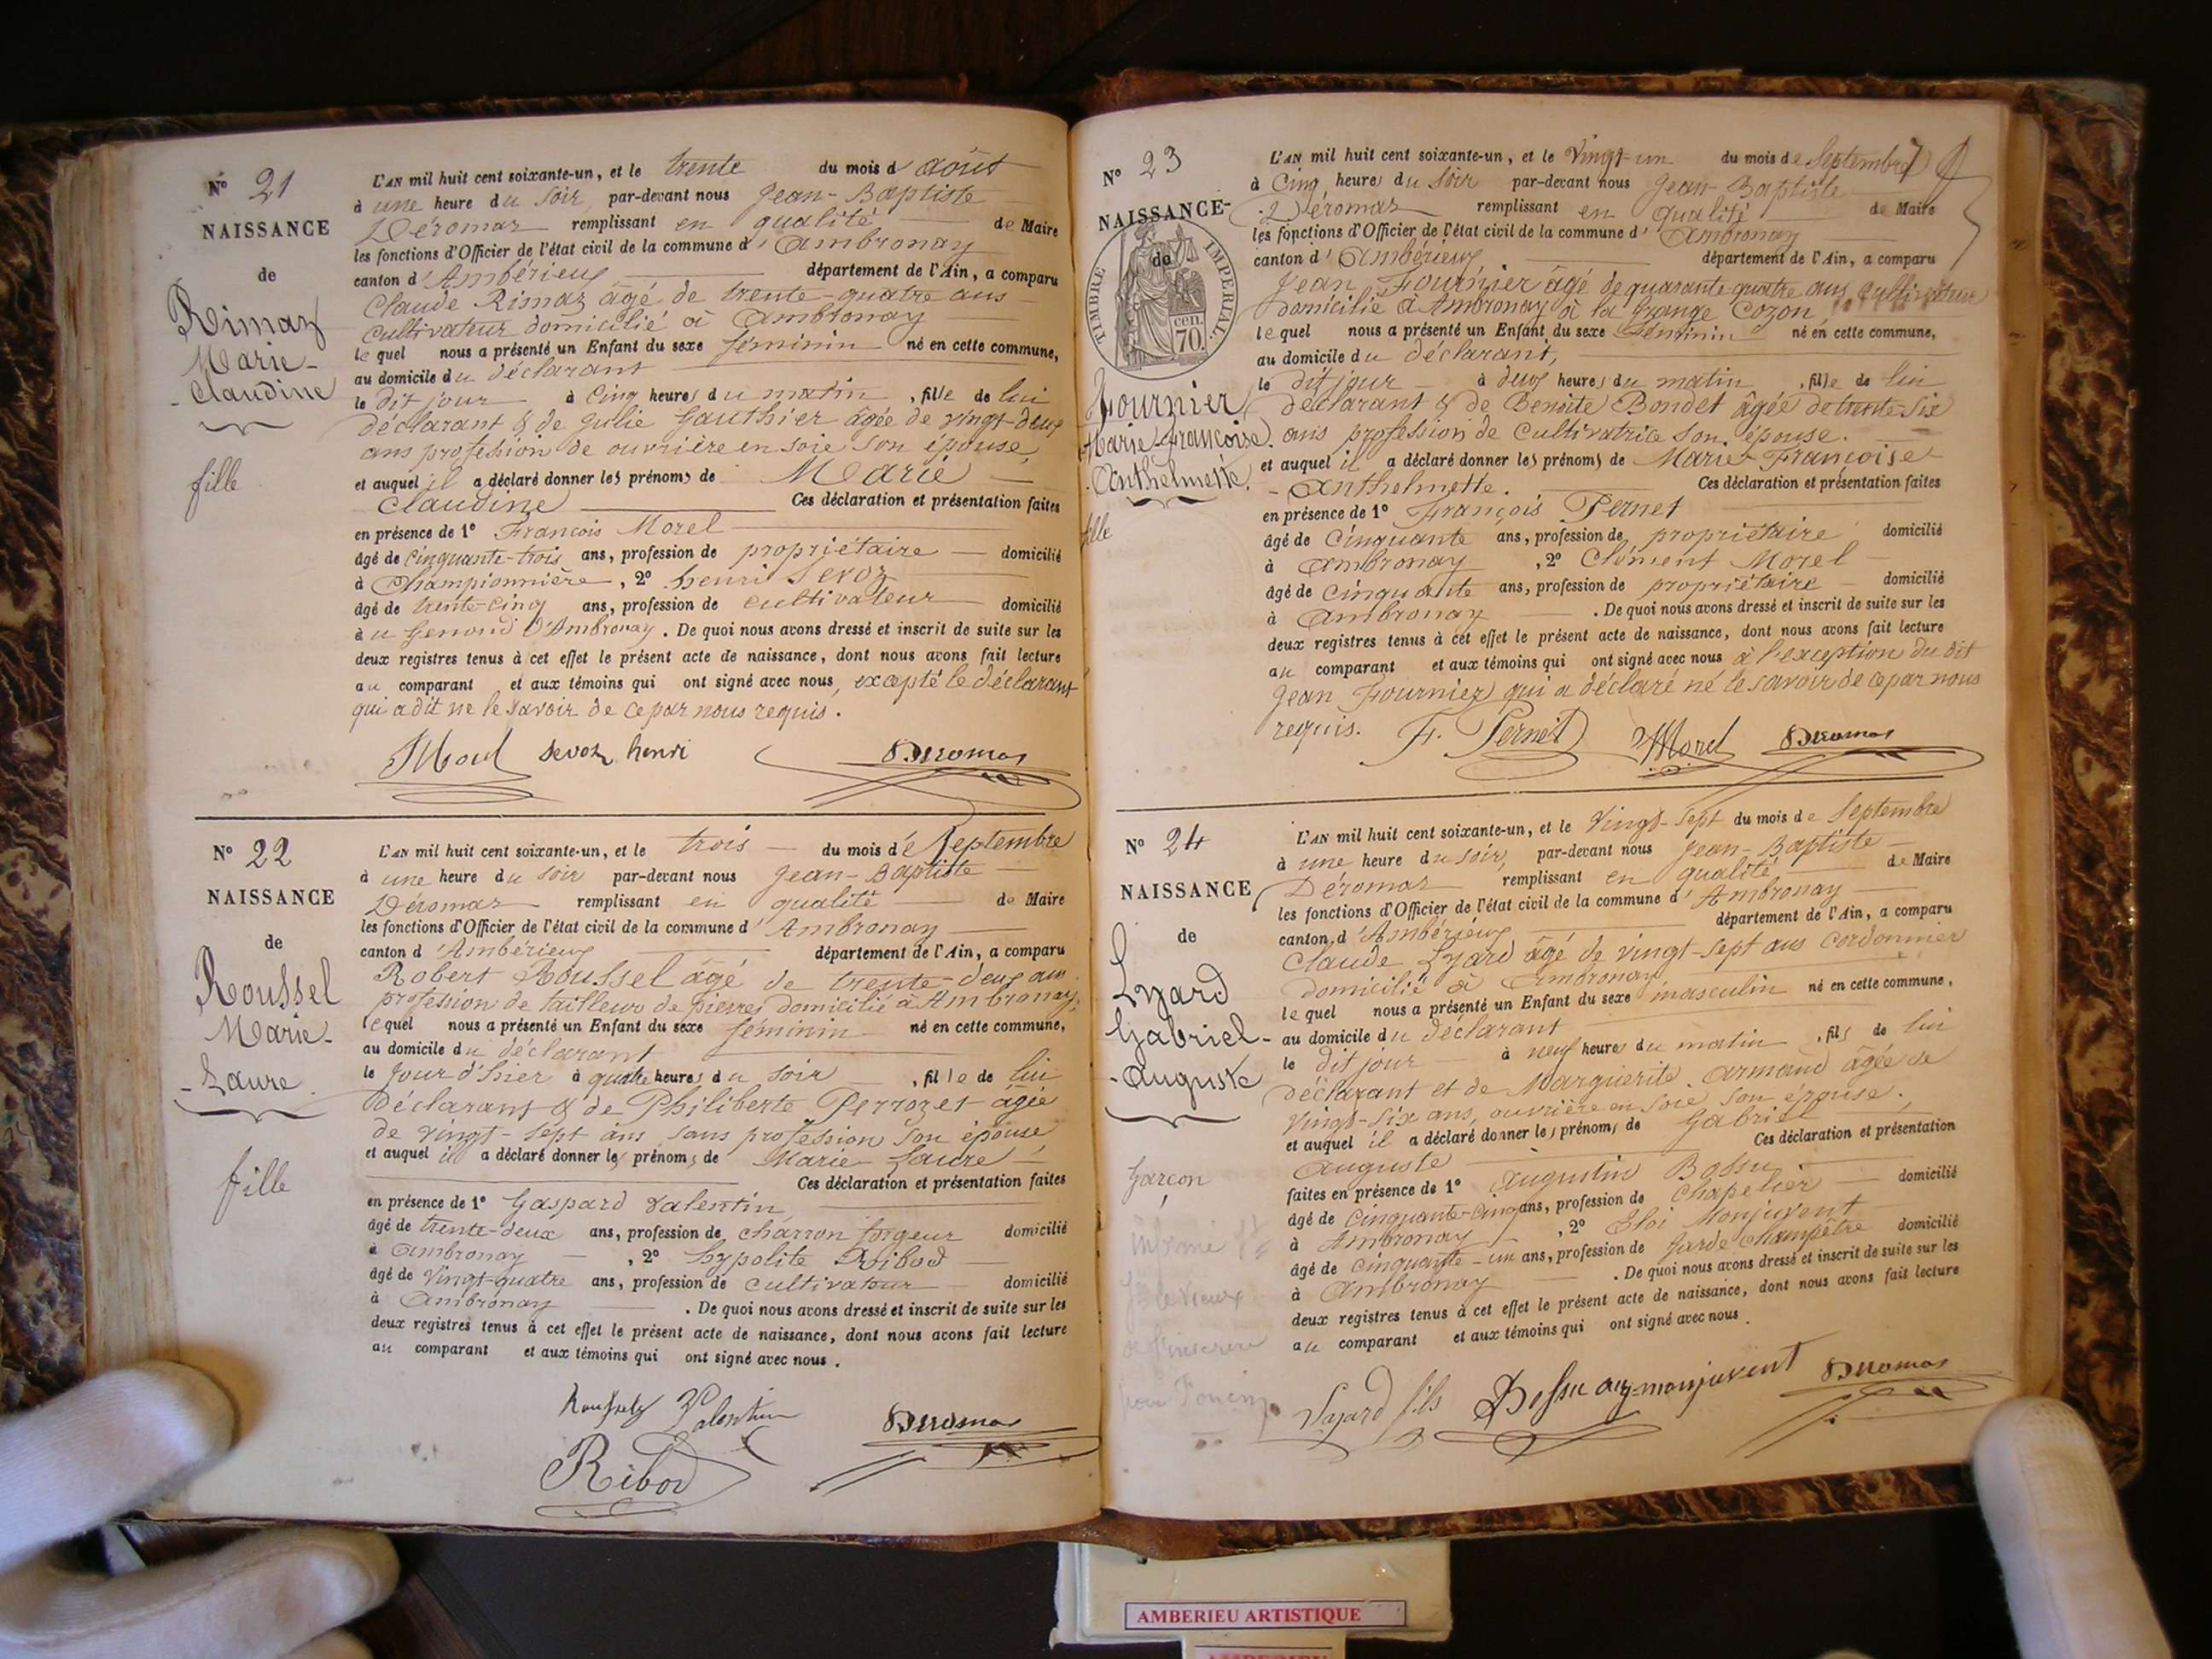 N° 21
NAISSANCE
de
Rimaz
Marie-
-Claudine
fille
L'AN mil huit cent soixante-un, et le trente du mois d'août
à une heure du soir, par-devant nous Jean-Baptiste
Déromas remplissant en qualité de Maire
les fonctions d'Officier de l'état civil de la commune d'Ambronay
canton d'Ambérieux département de l'Ain, a comparu
Claude Rimaz âgé de trente-quatre ans
cultivateur domicilié à Ambronay
lequel nous a présenté un Enfant du sexe féminin né en cette commune,
au domicile du déclarant
le dit jour à cinq heures du matin, fille de lui
déclarant & de Julie Gauthier âgée de vingt-deux
ans profession de ouvrière en soie son épouse,
et auquel il a déclaré donner les prénoms de Marie
Claudine Ces déclaration et présentation faites
en présence de 1° François Morel
âgé de cinquante-trois ans, profession de propriétaire domicilié
à Championnière, 2° henri Sevoz
âgé de trente-cinq ans, profession de cultivateur domicilié
au Genoud d'Ambronay. De quoi nous avons dressé et inscrit de suite sur les
deux registres tenus à cet effet le présent acte de naissance, dont nous avons fait lecture
au comparant et aux témoins qui ont signé avec nous, excepté le déclarant
qui a dit ne le savoir de ce par nous requis.
Morel Sevoz henri Déromas
N° 22
NAISSANCE
de
Roussel
Marie-
-Laure
fille
L'AN mil huit cent soixante-un, et le trois du mois de Septembre
à une heure du soir par-devant nous Jean-Baptiste
Déromas remplissant en qualité de Maire
les fonctions d'Officier de l'état civil de la commune d'Ambronay
canton d'Ambérieux département de l'Ain, a comparu
Robert Roussel âgé de trente-deux ans
profession de tailleur de pierres domicilié à Ambronay,
lequel nous a présenté un Enfant du sexe féminin né en cette commune,
au domicile du déclarant
le jour d'hier à quatre heures du soir, fille de lui
déclarant & de Philiberte Perrozet âgée
de vingt-sept ans sans profession son épouse
et auquel il a déclaré donner les prénoms de Marie Laure
Ces déclaration et présentation faites
en présence de 1° Gaspard Valentin
âgé de trente-deux ans, profession de charron forgeur domicilié
à Ambronay, 2° hypolite Ribod
âgé de vingt-quatre ans, profession de cultivateur domicilié
à Ambronay. De quoi nous avons dressé et inscrit de suite sur les
deux registres tenus à cet effet le présent acte de naissance, dont nous avons fait lecture
au comparant et aux témoins qui ont signé avec nous.
Valentin Déromas
Ribod
N° 23
NAISSANCE
de
TIMBRE IMPERIAL.
cen. 70.
Fournier
Marie-Françoise
-Anthelmette.
fille
L'AN mil huit cent soixante-un, et le Vingt-un du mois de Septembre 7
à Cinq heures du soir par-devant nous Jean-Baptiste
Déromas remplissant en qualité de Maire
les fonctions d'Officier de l'état civil de la commune d'Ambronay
canton d'Ambérieux département de l'Ain, a comparu
Jean Fournier âgé de quarante quatre ans cultivateur
domicilié à Ambronay à la Grange Cozon
lequel nous a présenté un Enfant du sexe féminin né en cette commune,
au domicile du déclarant,
le dit jour à deux heures du matin, fille de lui
déclarant & de Benoîte Bondet âgée de trente six
ans profession de cultivatrice son épouse.
et auquel il a déclaré donner les prénoms de Marie Françoise
-Anthelmette. Ces déclaration et présentation faites
en présence de 1° François Pernet
âgé de cinquante ans, profession de propriétaire domicilié
à Ambronay, 2° Clément Morel
âgé de cinquante ans, profession de propriétaire domicilié
à Ambronay. De quoi nous avons dressé et inscrit de suite sur les
deux registres tenus à cet effet le présent acte de naissance, dont nous avons fait lecture
au comparant et aux témoins qui ont signé avec nous à l'exception du dit
Jean Fournier qui a déclaré ne le savoir de ce par nous
requis. F. Pernet Morel Déromas
N° 24
NAISSANCE
de
Lyard
Gabriel-
-Auguste
Garçon
L'AN mil huit cent soixante-un, et le Vingt-sept du mois de Septembre
à une heure du soir, par-devant nous Jean-Baptiste
Déromas remplissant en qualité de Maire
les fonctions d'Officier de l'état civil de la commune d'Ambronay
canton d'Ambérieux département de l'Ain, a comparu
Claude Lyard âgé de vingt-sept ans cordonnier
domicilié à Ambronay
lequel nous a présenté un Enfant du sexe masculin né en cette commune,
au domicile du déclarant
le dit jour à neuf heures du matin, fils de lui
déclarant et de Marguerite Armand âgée de
vingt-six ans, ouvrière en soie son épouse.
et auquel il a déclaré donner les prénoms de Gabriel
Auguste Ces déclaration et présentation
faites en présence de 1° Augustin Bossu
âgé de cinquante-cinq ans, profession de chapelier domicilié
à Ambronay, 2° Eloi Monjuvent
âgé de cinquante-un ans, profession de garde champêtre domicilié
à Ambronay. De quoi nous avons dressé et inscrit de suite sur les
deux registres tenus à cet effet le présent acte de naissance, dont nous avons fait lecture
au comparant et aux témoins qui ont signé avec nous.
Lyard fils Bossu aug monjuvent Déromas
AMBERIEU ARTISTIQUE